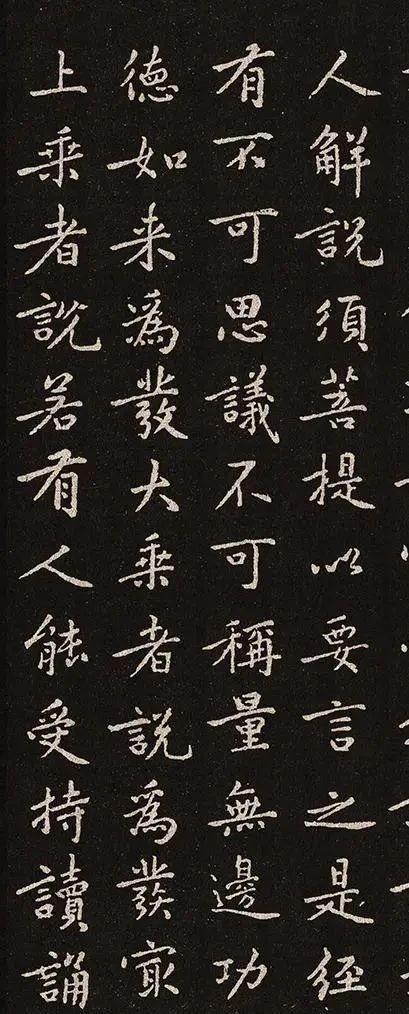 人解說須菩提以要言之是經
有不可思議不可稱量無邊功
德如来為發大乘者說為發㝡
上乘者說若有人能受持讀誦